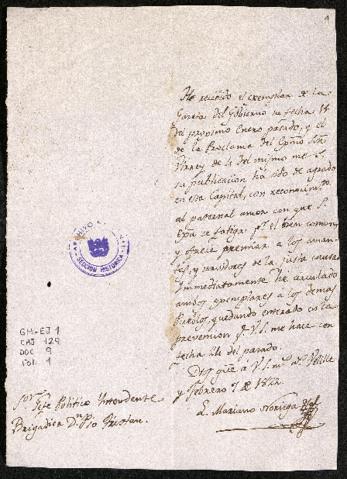 1
He recivido el exemplar de la
Gazeta del Gobierno su fecha 14
del proximo Enero pasado, y el
de la Proclama del Exmo Sõr
Virrey de 4 del mismo me
su publicacion ha sido de agrado
en esta Capital, con reconocim.to
al paternal amor con que S.
Exa se fatiga p.r el bien comun
y ofrece premiar a los
y de la justa causa
Immediatamente he circulado
ambos exemplares a los demas
Pueblos, quedando enterado en la
prevencion q.e V.S. me hace con
fecha del pasado.
Dios gũe à V.S. m.s a.s
y Febrero 7 de 1822
L. Mariano Noriega
ARCHIVO
SECCION HISTORICA
GM-EJ 1
CAJ 129
DOC 9
FOL 1
Sor Gefe Politico Yntendente
Brigadier Dn Pio Tristan.